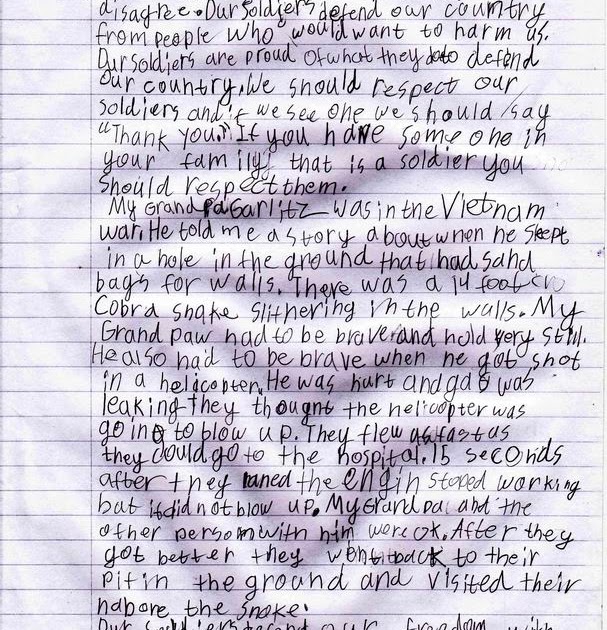 disagree. Our Soldiers defend our country
from people who would want to harm us.
Our soldiers are proud of what they do to defend
our country. We should respect our
soldiers and if we see one we should say
"Thank you." If you have some one in
your family that is a soldier you
should respect them.
My Grandpa Garlitz was in the Vietnam
war. He told me a story about when he slept
in a hole in the ground that had sand
bags for walls. There was a 14 foot
Cobra snake slithering in the walls. My
Grand paw had to be brave and hold very still.
He also had to be brave when he got shot
in a helicopter. He was hurt and gas was
leaking they thought the helicopter was
going to blow up. They flew as fast as
they could go to the hospital. 15 seconds
after they laned the engin stoped working
but it did not blow up. My Grandpa and the
other person with him were ok. After they
got better they went back to their
pit in the ground and visited their
nabore the snake.
Our defend our freedom with